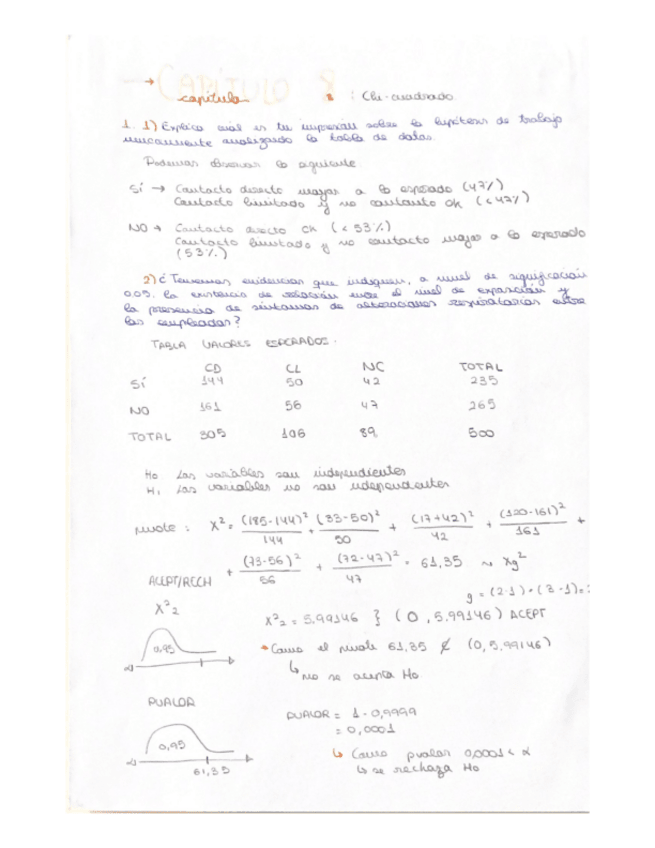 → CAPÍTULO 8
capítulo 8 : Chi-cuadrado
1. 1) Explica cuál es tu impresión sobre la hipótesis de trabajo
únicamente analizando la tabla de datos.
Podemos observar lo siguiente
SÍ → Contacto directo mayor a lo esperado (47%)
Contacto limitado y no contacto ok (<47%)
NO → Contacto directo ok (<53%)
Contacto limitado y no contacto mayor a lo esperado
(53%)
2) ¿Tenemos evidencias que indiquen, a nivel de significación
0.05, la existencia de relación entre el nivel de exposición y
la presencia de síntomas de alteraciones respiratorias entre
los empleados?
TABLA VALORES ESPERADOS.
CD CL NC TOTAL
SÍ 144 50 42 235
NO 161 56 47 265
TOTAL 305 106 89 500
Ho Las variables son independientes
H1 Las variables no son independientes
pivote : X²= (185-144)²/144 + (33-50)²/50 + (17+42)²/42 + (120-161)²/161 +
+ (73-56)²/56 + (72-47)²/47 = 61,35 ~ Xg²
g = (2-1)·(3-1)=2
ACEPT/RECH
X²2
X²2 = 5.99146 } (0, 5.99146) ACEPT
0,95
→ Como el pivote 61,35 ∉ (0, 5.99146)
↳ no se acepta Ho
PVALOR
PVALOR = 1 - 0,9999
= 0,0001
0,95
61,35
↳ Como pvalor 0,0001 < α
↳ se rechaza Ho